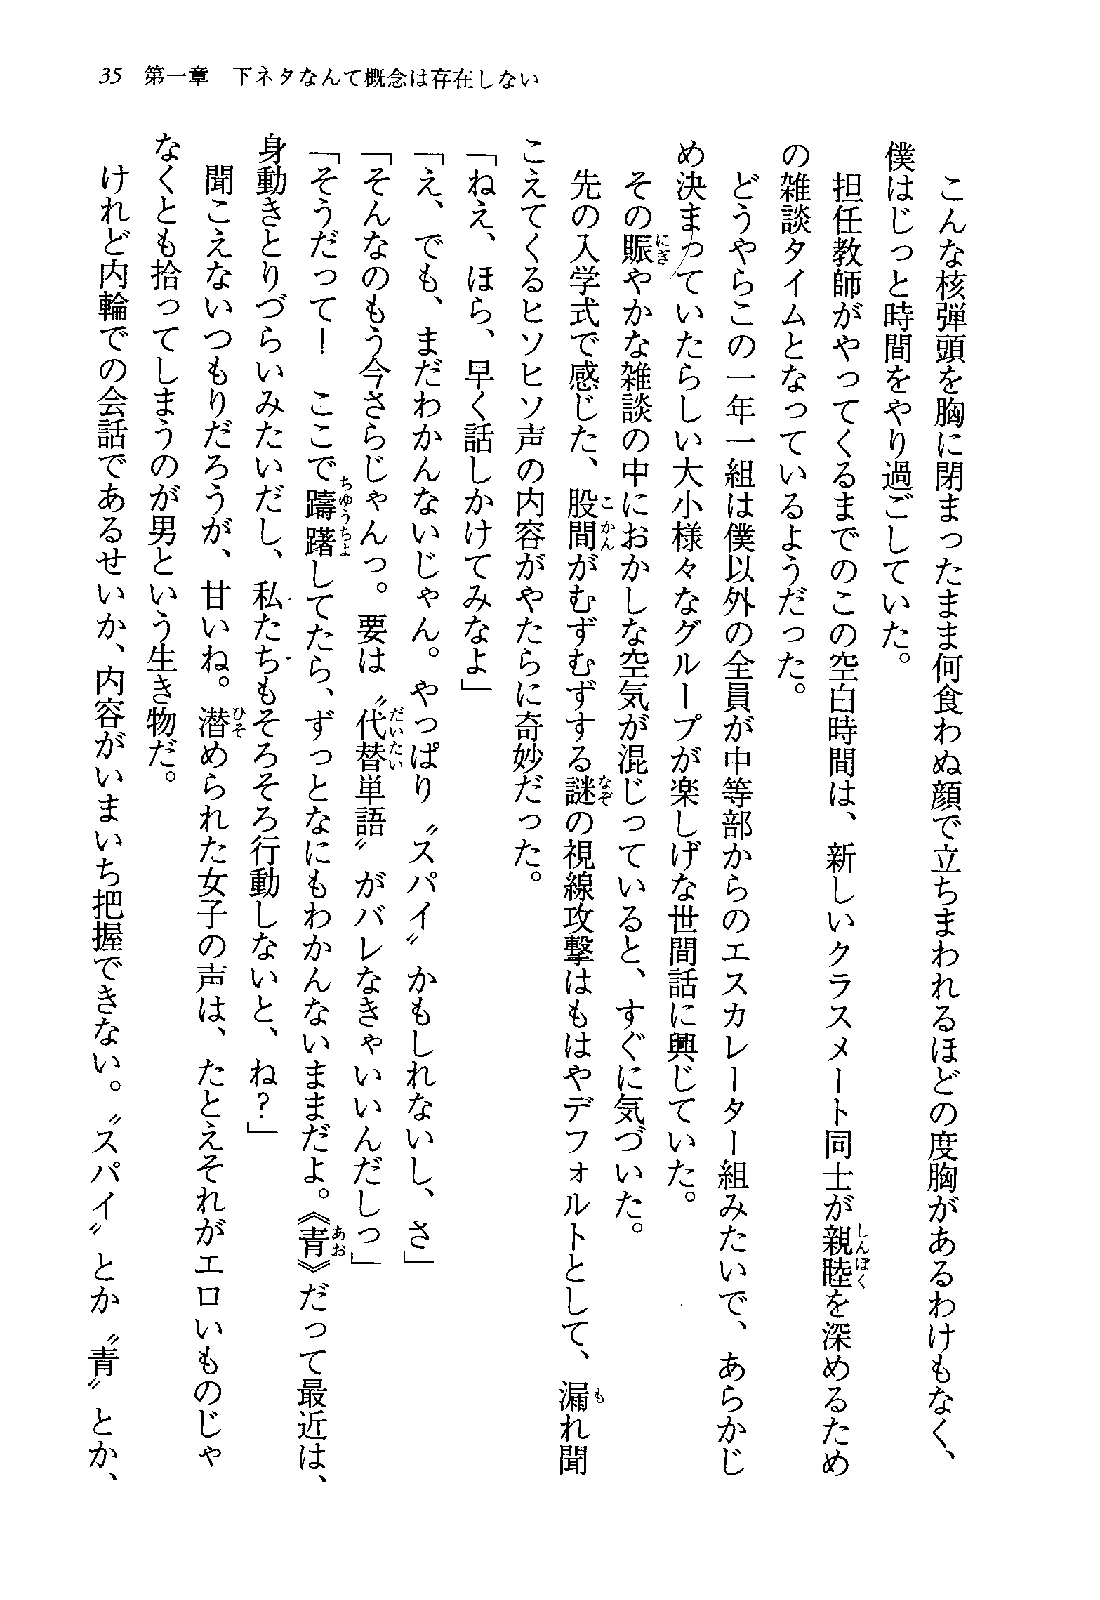 35 第一章 下ネタなんて概念は存在しない
こんな核弾頭を胸に閉まったまま何食わぬ顔で立ちまわれるほどの度胸があるわけもなく、
僕はじっと時間をやり過ごしていた。
担任教師がやってくるまでのこの空白時間は、新しいクラスメート同士が親睦を深めるため
の雑談タイムとなっているようだった。
どうやらこの一年一組は僕以外の全員が中等部からのエスカレーター組みたいで、あらかじ
め決まっていたらしい大小様々なグループが楽しげな世間話に興じていた。
その賑やかな雑談の中におかしな空気が混じっていると、すぐに気づいた。
先の入学式で感じた、股間がむずむずする謎の視線攻撃はもはやデフォルトとして、漏れ聞
こえてくるヒソヒソ声の内容がやたらに奇妙だった。
「ねえ、ほら、早く話しかけてみなよ」
「え、でも、まだわかんないじゃん。やっぱり〝スパイ〟かもしれないし、さ」
「そんなのもう今さらじゃんっ。要は〝代替単語〟がバレなきゃいいんだしっ」
「そうだって！　ここで躊躇してたら、ずっとなにもわかんないままだよ。《青》だって最近は、
身動きとりづらいみたいだし、私たちもそろそろ行動しないと、ね？」
聞こえないつもりだろうが、甘いね。潜められた女子の声は、たとえそれがエロいものじゃ
なくとも拾ってしまうのが男という生き物だ。
けれど内輪での会話であるせいか、内容がいまいち把握できない。〝スパイ〟とか〝青〟とか、